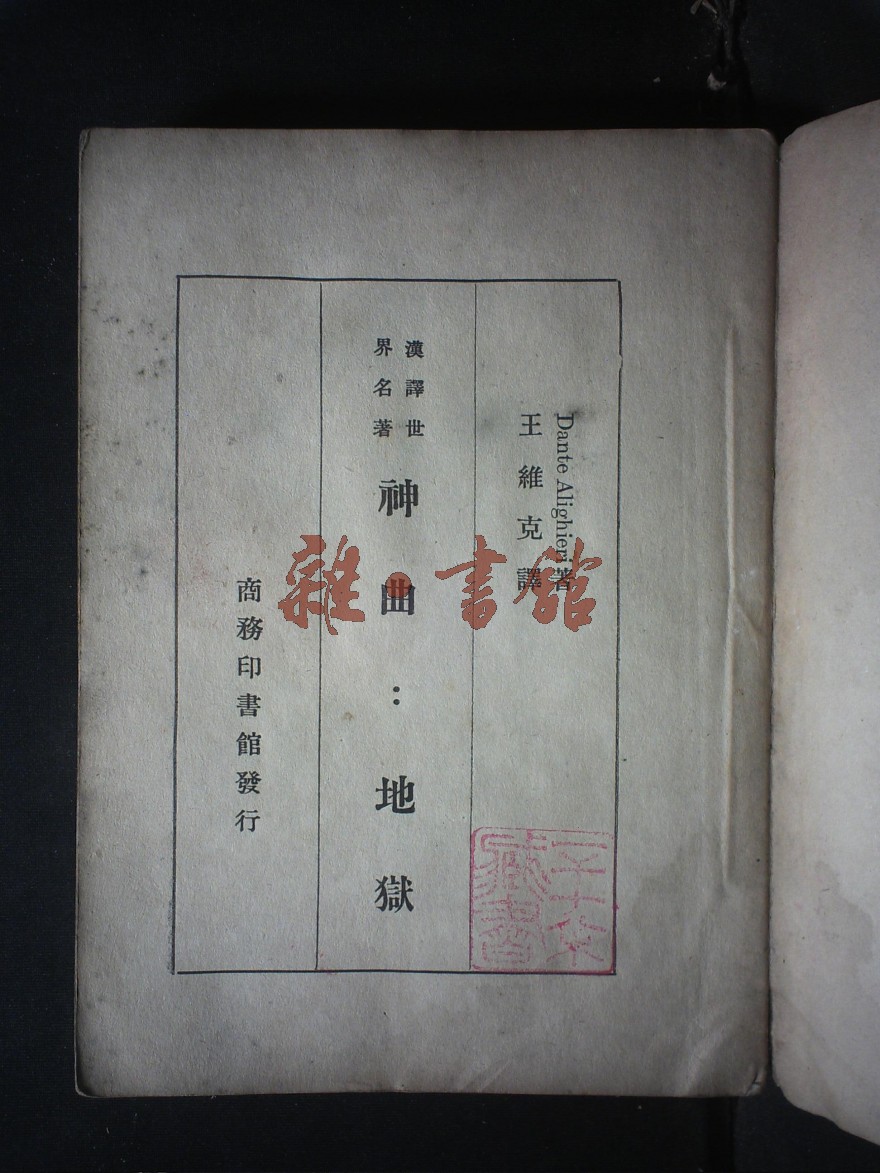 Dante Alighieri著
王維克譯
漢譯世
界名著
神曲：地獄
商務印書館發行
雜·書館
藏書